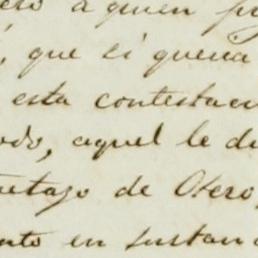 a quien
, que si queria
esta contestaci
odo, aquel le di
de Otero,
nto en sustanc